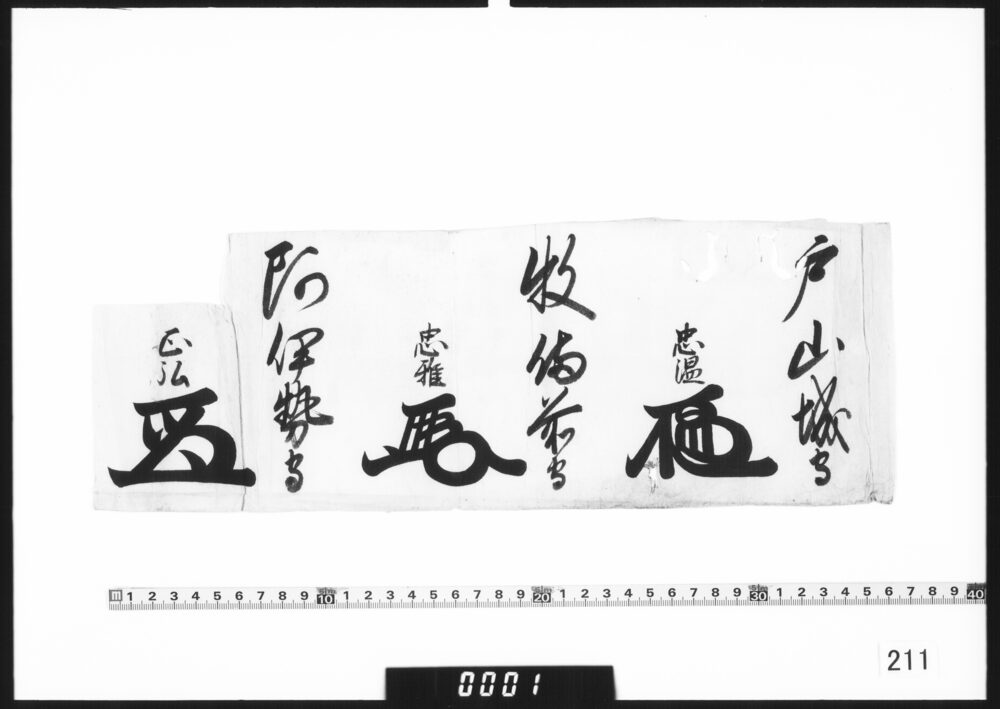 戸山城守
忠温
牧備前守
忠雅
阿伊勢守
正弘
1 2 3 4 5 6 7 8 9 10 1 2 3 4 5 6 7 8 9 20 1 2 3 4 5 6 7 8 9 30 1 2 3 4 5 6 7 8 9 40
211
0001